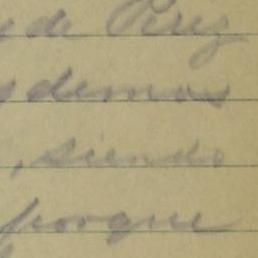 de Perez
demas
, siendo
porque